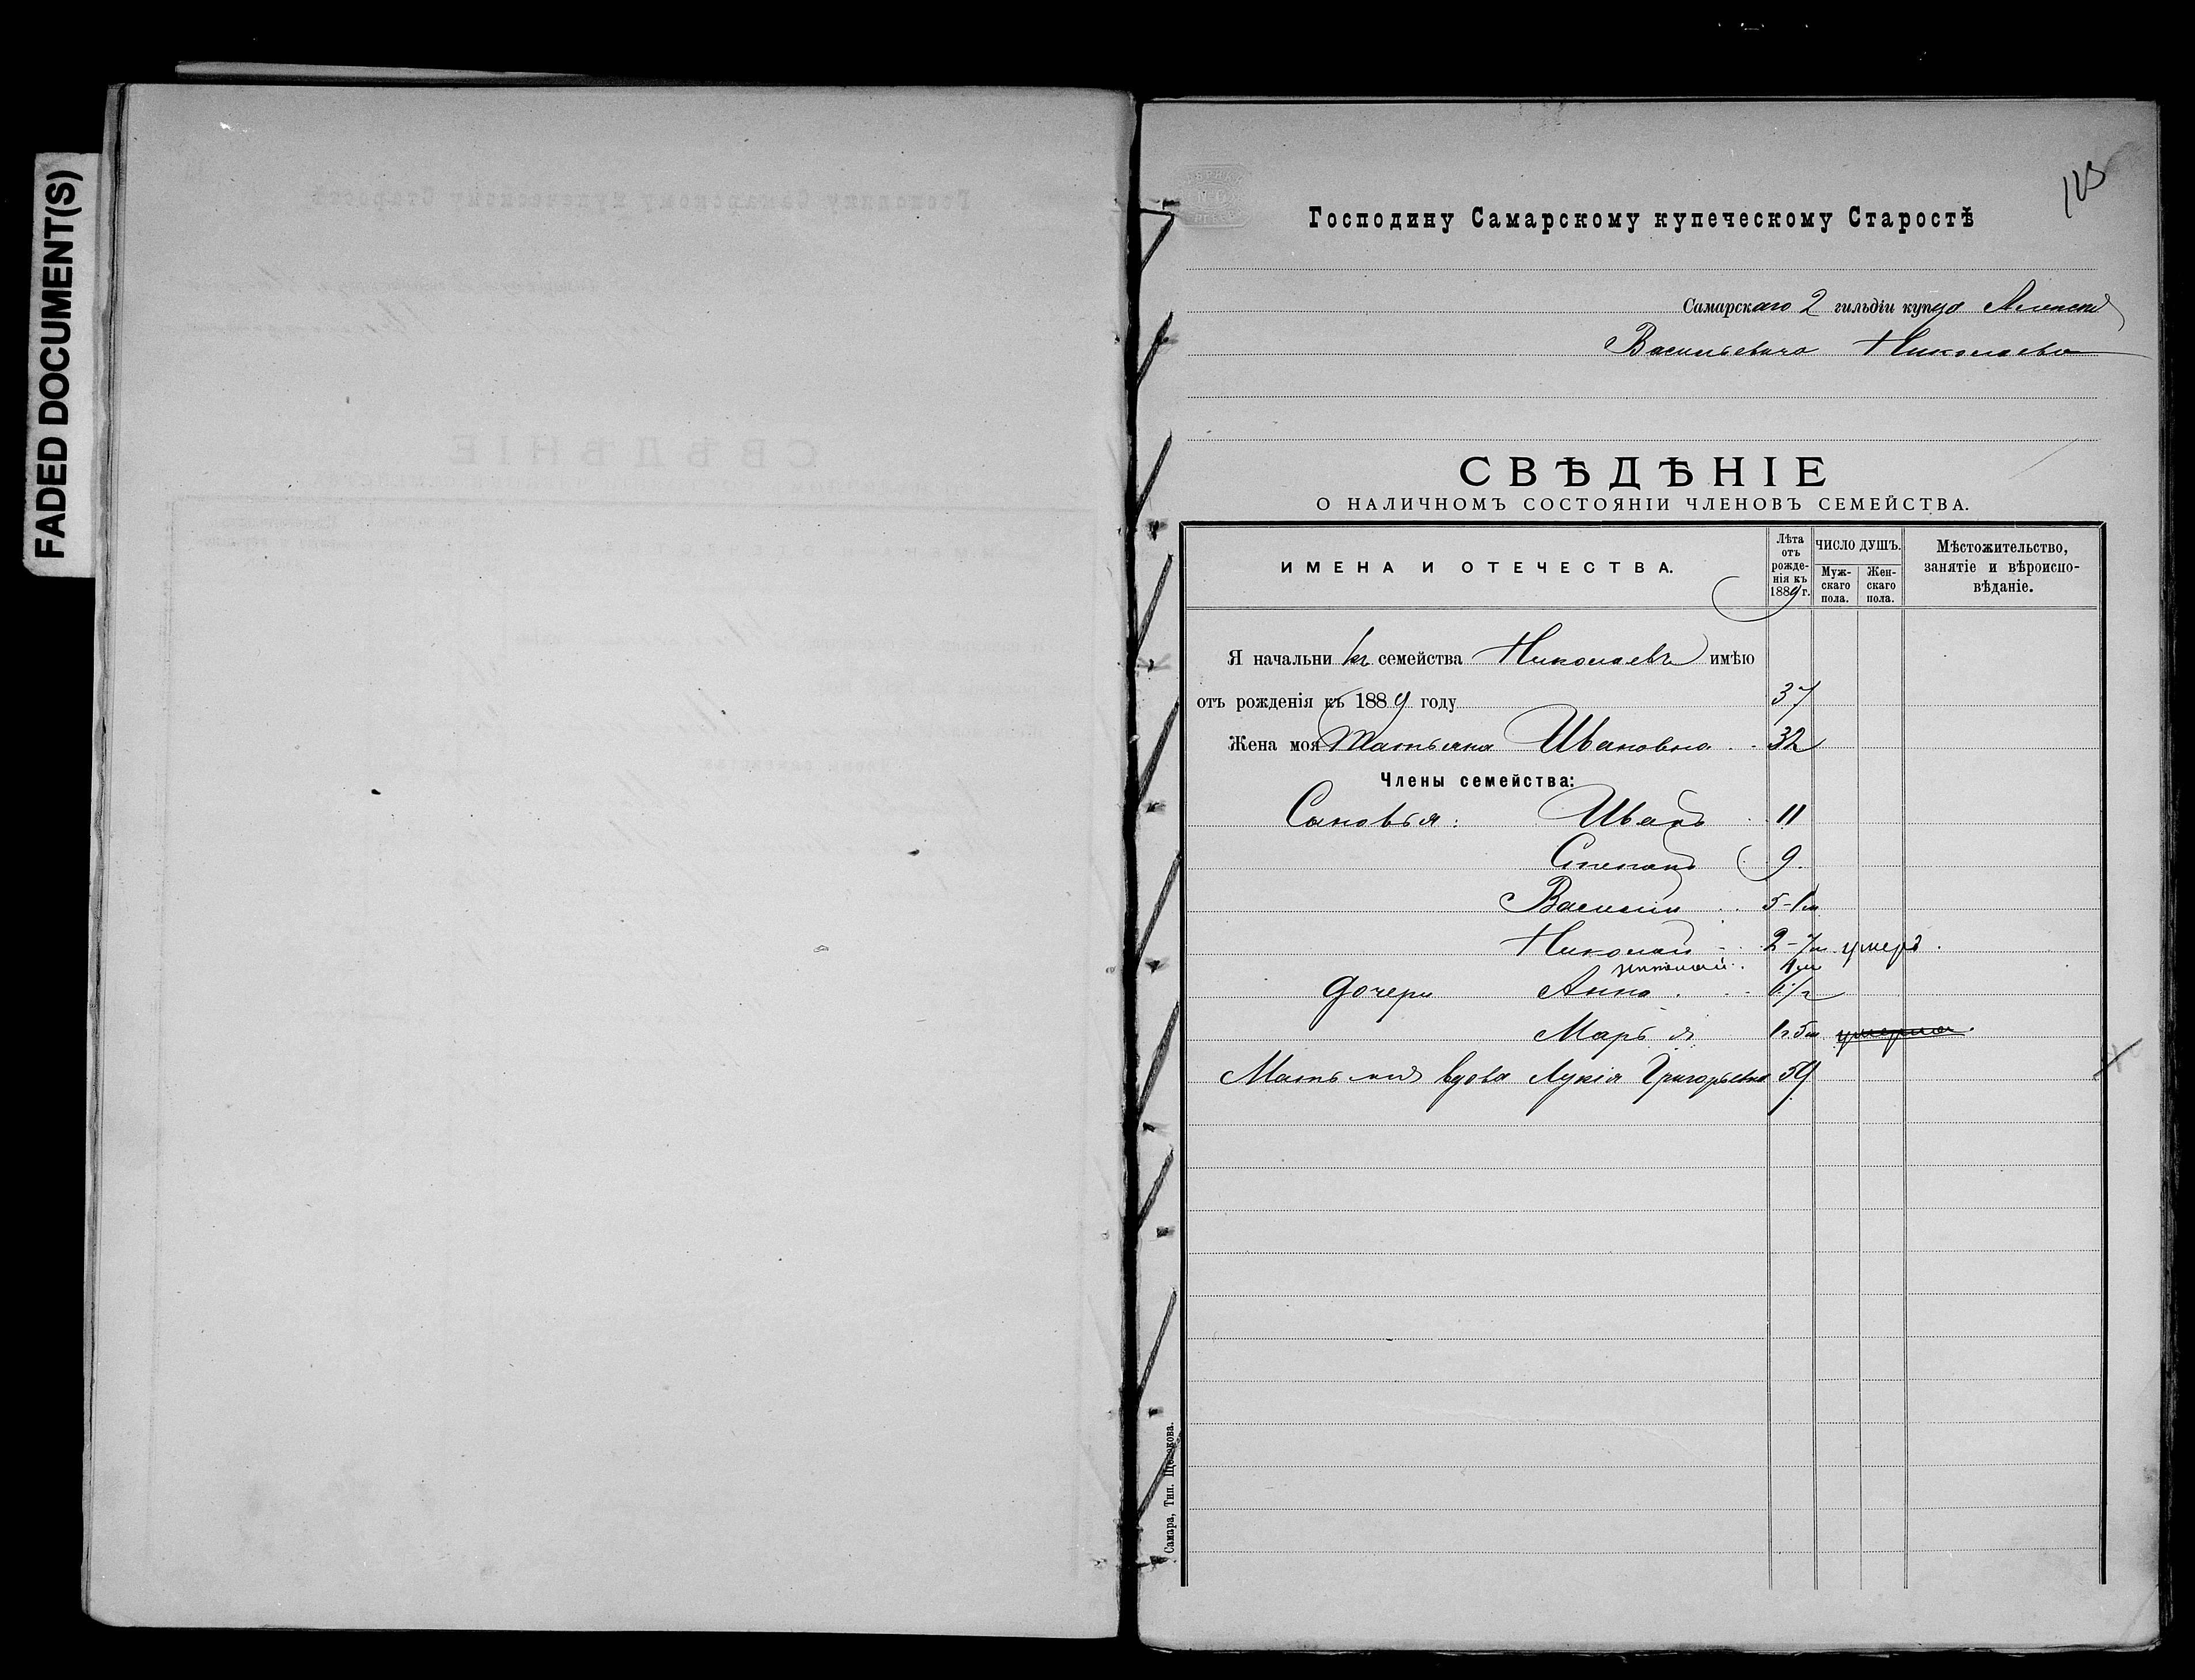 FADED DOCUMENT(S)
Господину Самарскому купеческому Старостѣ
Самарскаго 2 гильдіи купца
Васильевича Николаева
СВѢДѢНІЕ
О НАЛИЧНОМЪ СОСТОЯНІИ ЧЛЕНОВЪ СЕМЕЙСТВА.
ИМЕНА И ОТЕЧЕСТВА. Лѣта отъ рожденія къ 1889 г. ЧИСЛО ДУШЪ. Мужскаго пола. Женскаго пола. Мѣстожительство, занятіе и вѣроисповѣданіе.
Я начальникъ семейства Николаевъ имѣю
отъ рожденія къ 1889 году 37
Жена моя Татьяна Ивановна 32
Члены семейства:
Сыновья: Иванъ 11
Степанъ 9
Василий 5-1м
Николай 2-7м умеръ.
4м
Дочери Анна 6 1/2
Марья 1г. 5м. умерла.
Мать моя вдова Лукія Григорьевна 59
Самара, Тип. Щелокова.